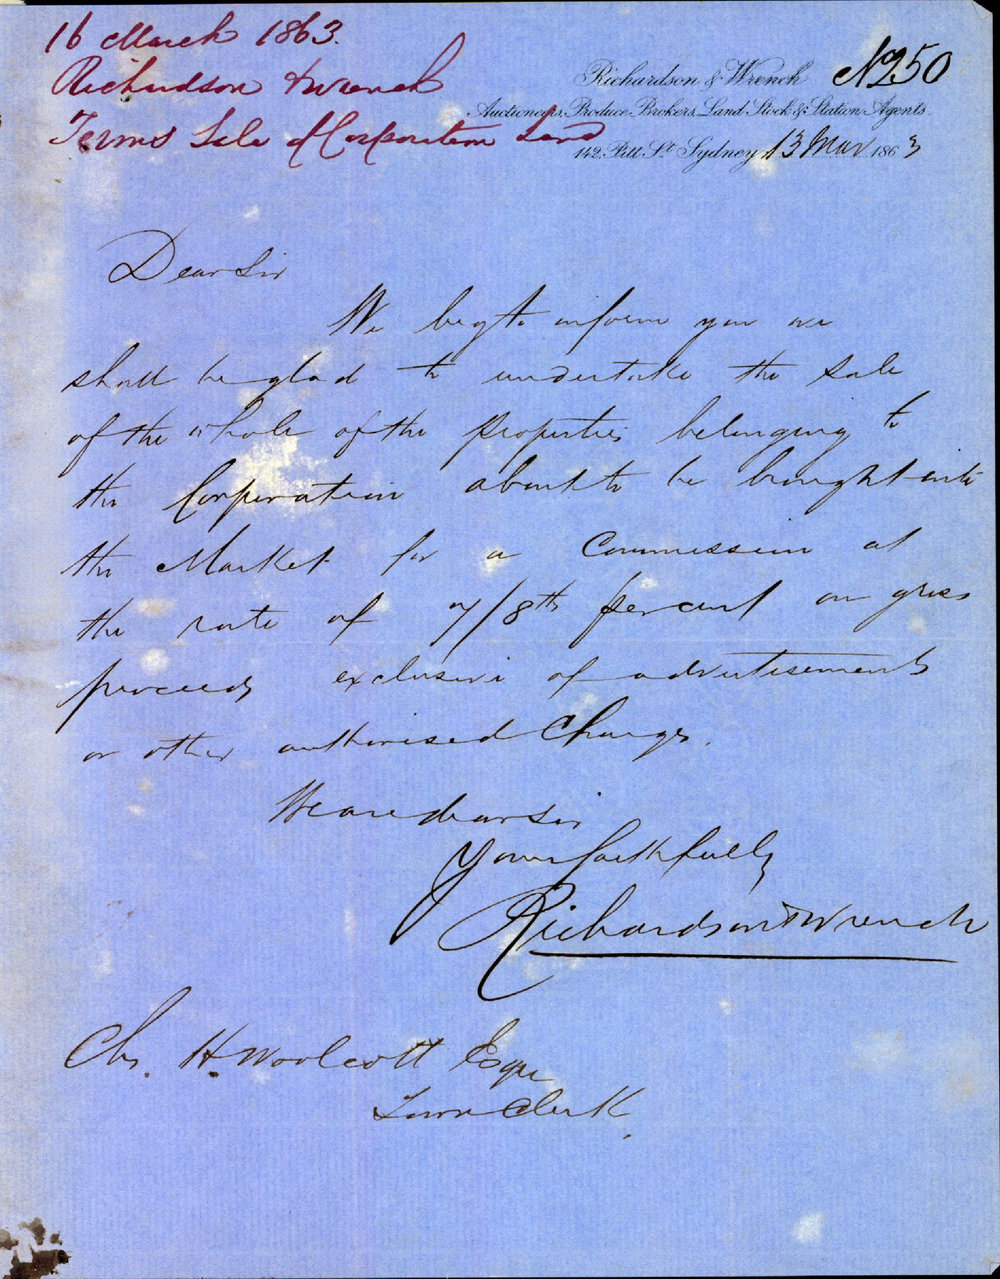 16 March 1863.
Richardson & Wrench
Terms Sale of Corporation Land
No 250
Richardson & Wrench
Auctioneers, Produce Brokers, Land Stock & Station Agents.
142, Pitt St. Sydney 13 Mar 1863
Dear Sir
We beg to inform you we
shall be glad to undertake the sale
of the whole of the properties belonging to
the Corporation about to be brought into
the Market for a Commission at
the rate of 7/8ths percent on gross
proceeds exclusive of advertisements
or other authorised Charges.
We are dear Sir
Yours faithfully
Richardson & Wrench
Chs. H. Woolcott Esqre
Town Clerk.